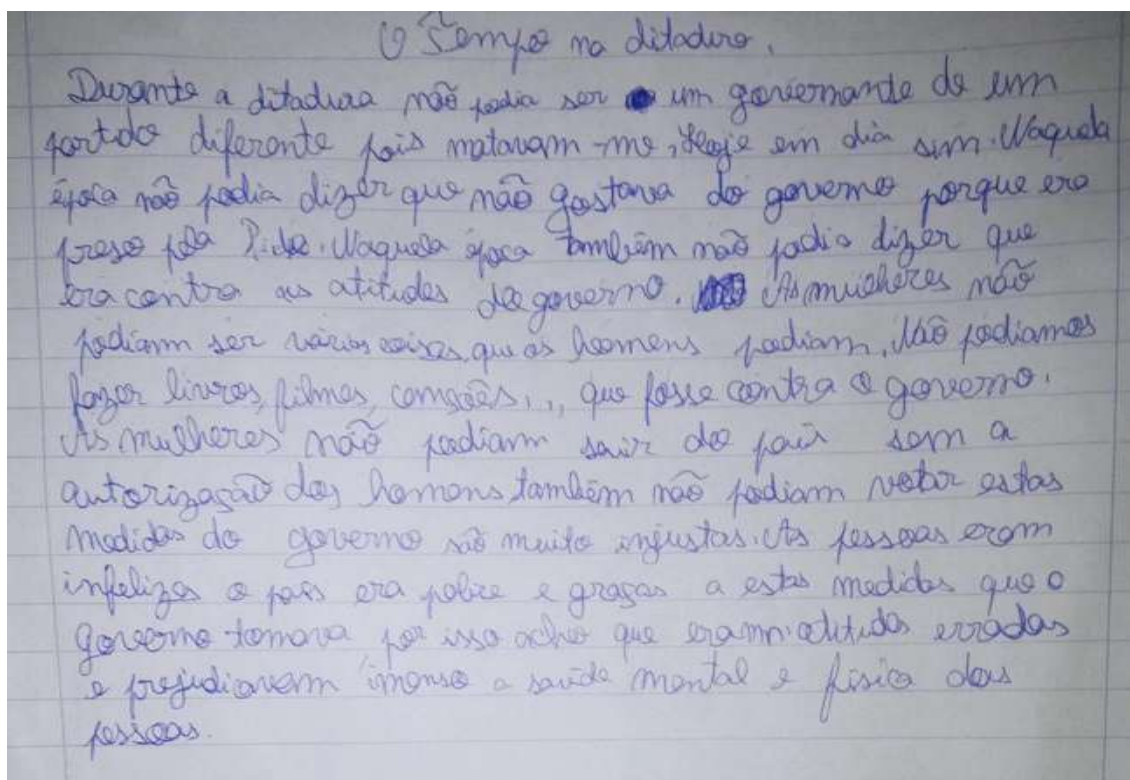 O Tempo na ditadura.
Durante a ditadura não podia ser um governante de um
partido diferente pois matavam-me, Hoje em dia sim. Naquela
época não podia dizer que não gostava do governo porque era
preso pela Pide. Naquela época também não podia dizer que
era contra as atitudes do governo. As mulheres não
podiam ser várias coisas que os homens podiam. Não podiamos
fazer livros, filmes, canções... que fosse contra o governo.
As mulheres não podiam sair do país sem a
autorização dos homens também não podiam votar estas
medidas do governo são muito injustas. As pessoas eram
infelizes o país era pobre e graças a estas medidas que o
governo tomava por isso acho que eram atitudes erradas
e prejudicavam imenso a saúde mental e física das
pessoas.